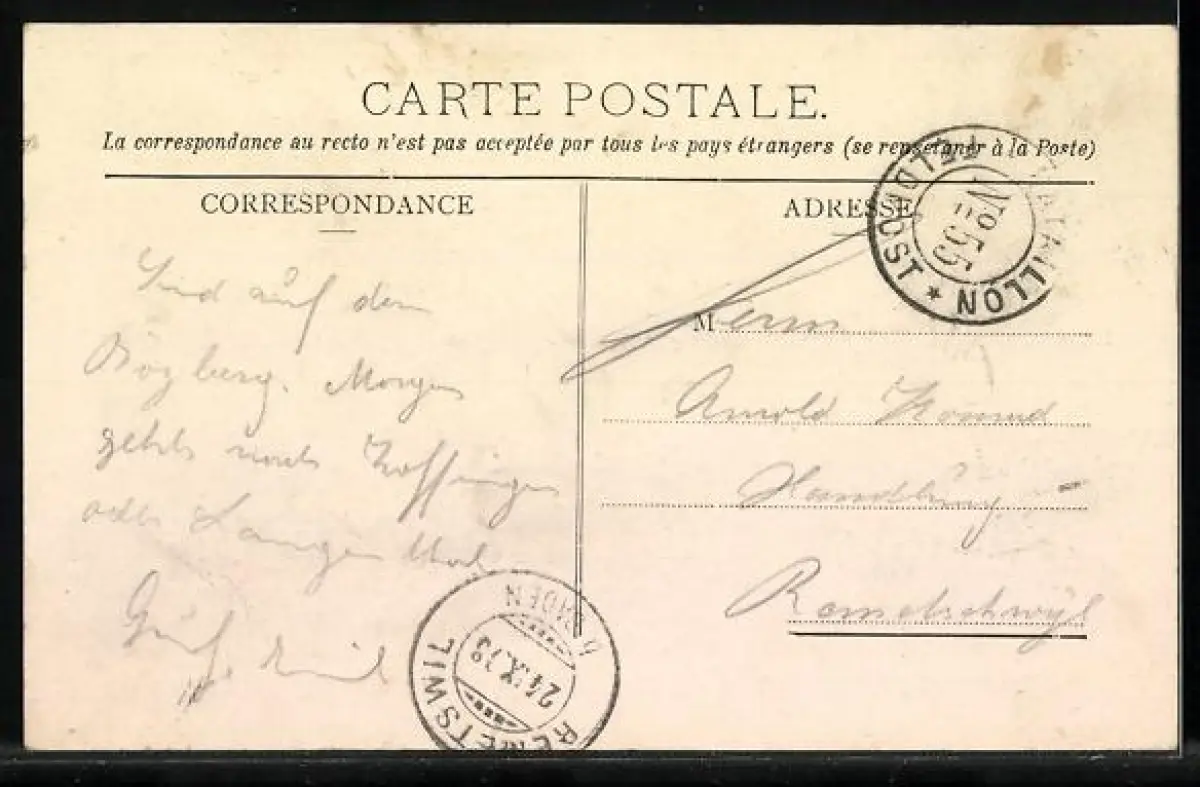 CARTE POSTALE.
La correspondance au recto n'est pas acceptée par tous les pays étrangers (se renseigner à la Poste)
CORRESPONDANCE
ADRESSE
FELDPOST
No 55
BATAILLON
Sind auf dem
Bözberg. Morgen
gehts nach Zoffingen
oder Langenthal
Gruss Emil
M
Herrn
Arnold Konrad
Handlung
Remetschwyl
REMETSWIL
24.IX.